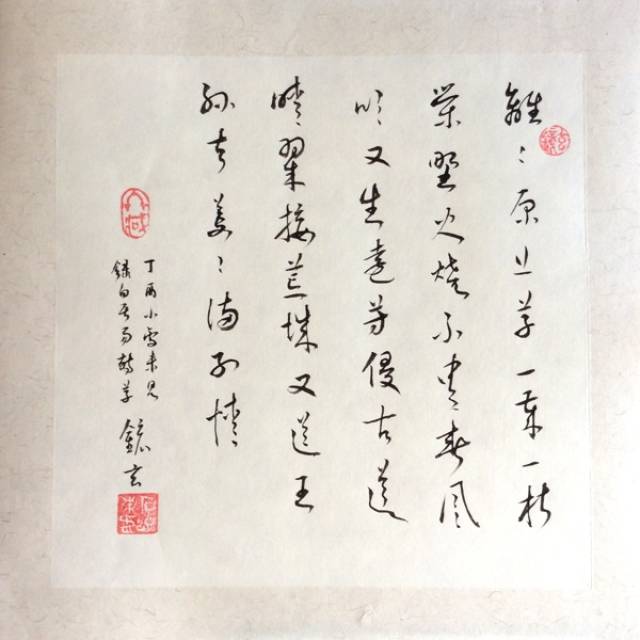 離〻原上草一歲一枯
榮野火燒不盡春風
吹又生遠芳侵古道
晴翠接荒城又送王
孫去萋〻滿別情
丁酉小雪
錄白居易